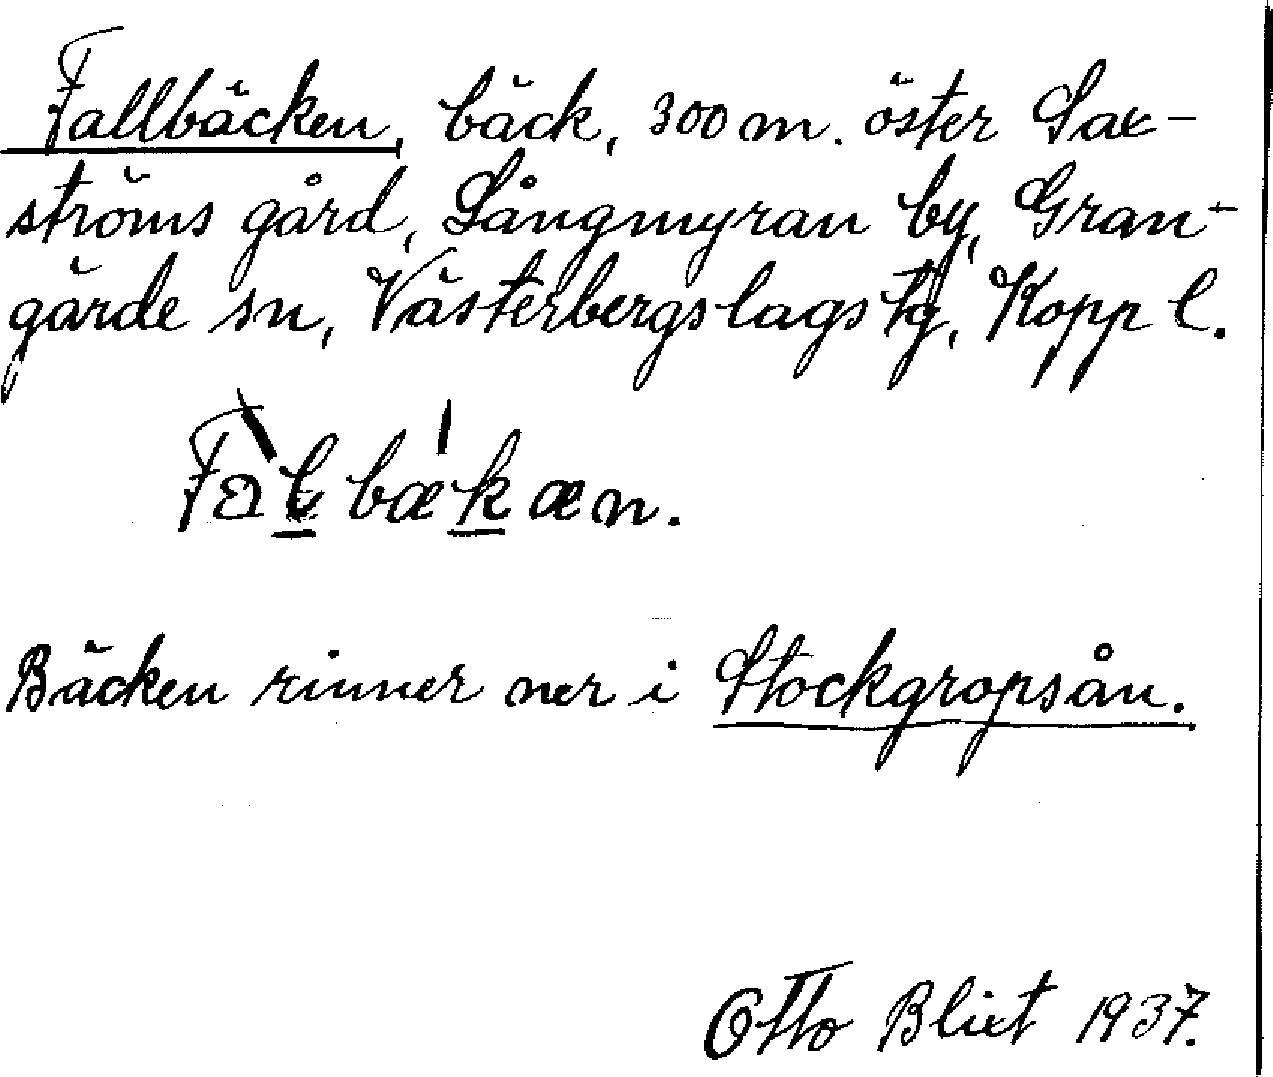 Fallbäcken, bäck, 300 m. öster Sax-
ströms gård, Långmyran by, Gran-
gärde sn, Västerbergslags tg, Kopp l.
Fàlbǽkæn.
Bäcken rinner ner i Stockgropsån.
Otto Blixt 1937.